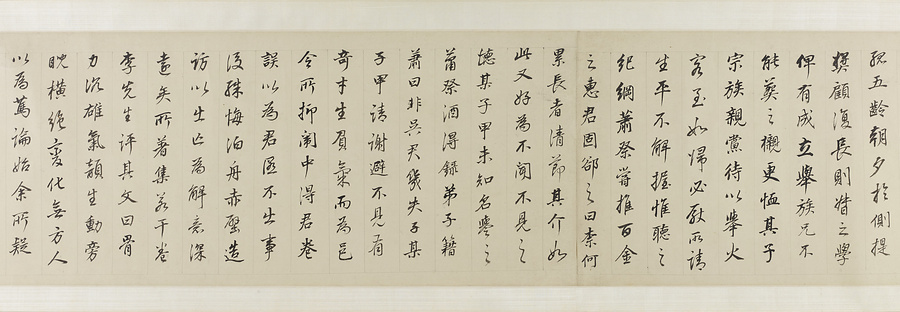 五齡朝夕於側提
顧復長則督之學
俾有成立舉族兄不
能葬之櫬更恤其子
宗族親黨待以舉火
客至如歸必厭所請
生平不解握惟聽之
紀綱蕭祭嘗推百金
之惠君固郤之曰柰何
累長者清節其介如
此又好為不聞不見之
德其子甲未知名嘗之
蕭祭酒得錄弟子籍
蕭曰非吳天幾失子其
子甲請謝避不見有
奇才生負氣而為邑
令所抑闈中得君卷
誤以為君區不出事
後殊悔泊舟赤壁造
訪以出亡為解意深
遠矣所著集若干卷
李先生評其文曰骨
力沉雄氣韻生動旁
睨橫絕變化無方人
以為篤論始余所疑